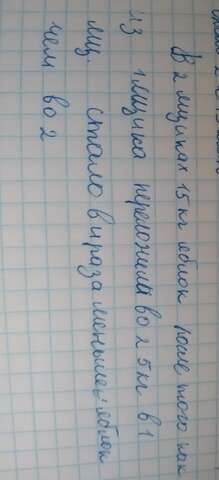 В 2 ящиках 15 кг яблок после того как
из 1 ящика переложили во 2 5 кг в 1
ящ. стало в 4 раза меньше яблок
чем во 2